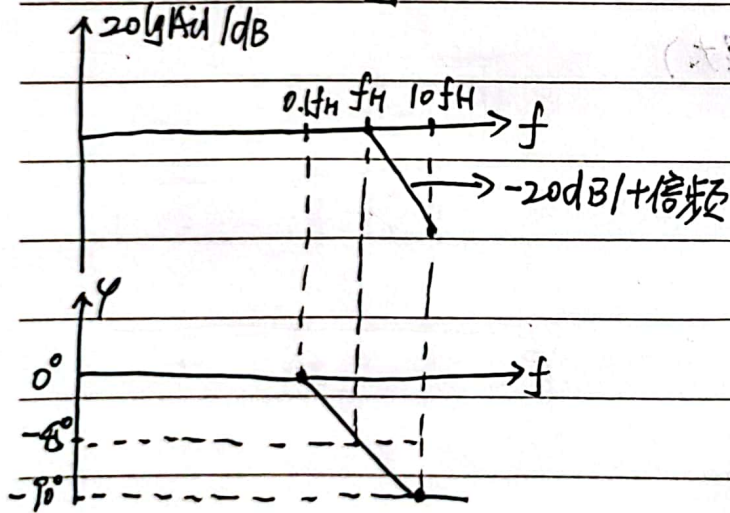 20lg|Au|/dB
0.1fH fH 10fH
f
-20dB/十倍频
φ
0°
f
-45°
-90°